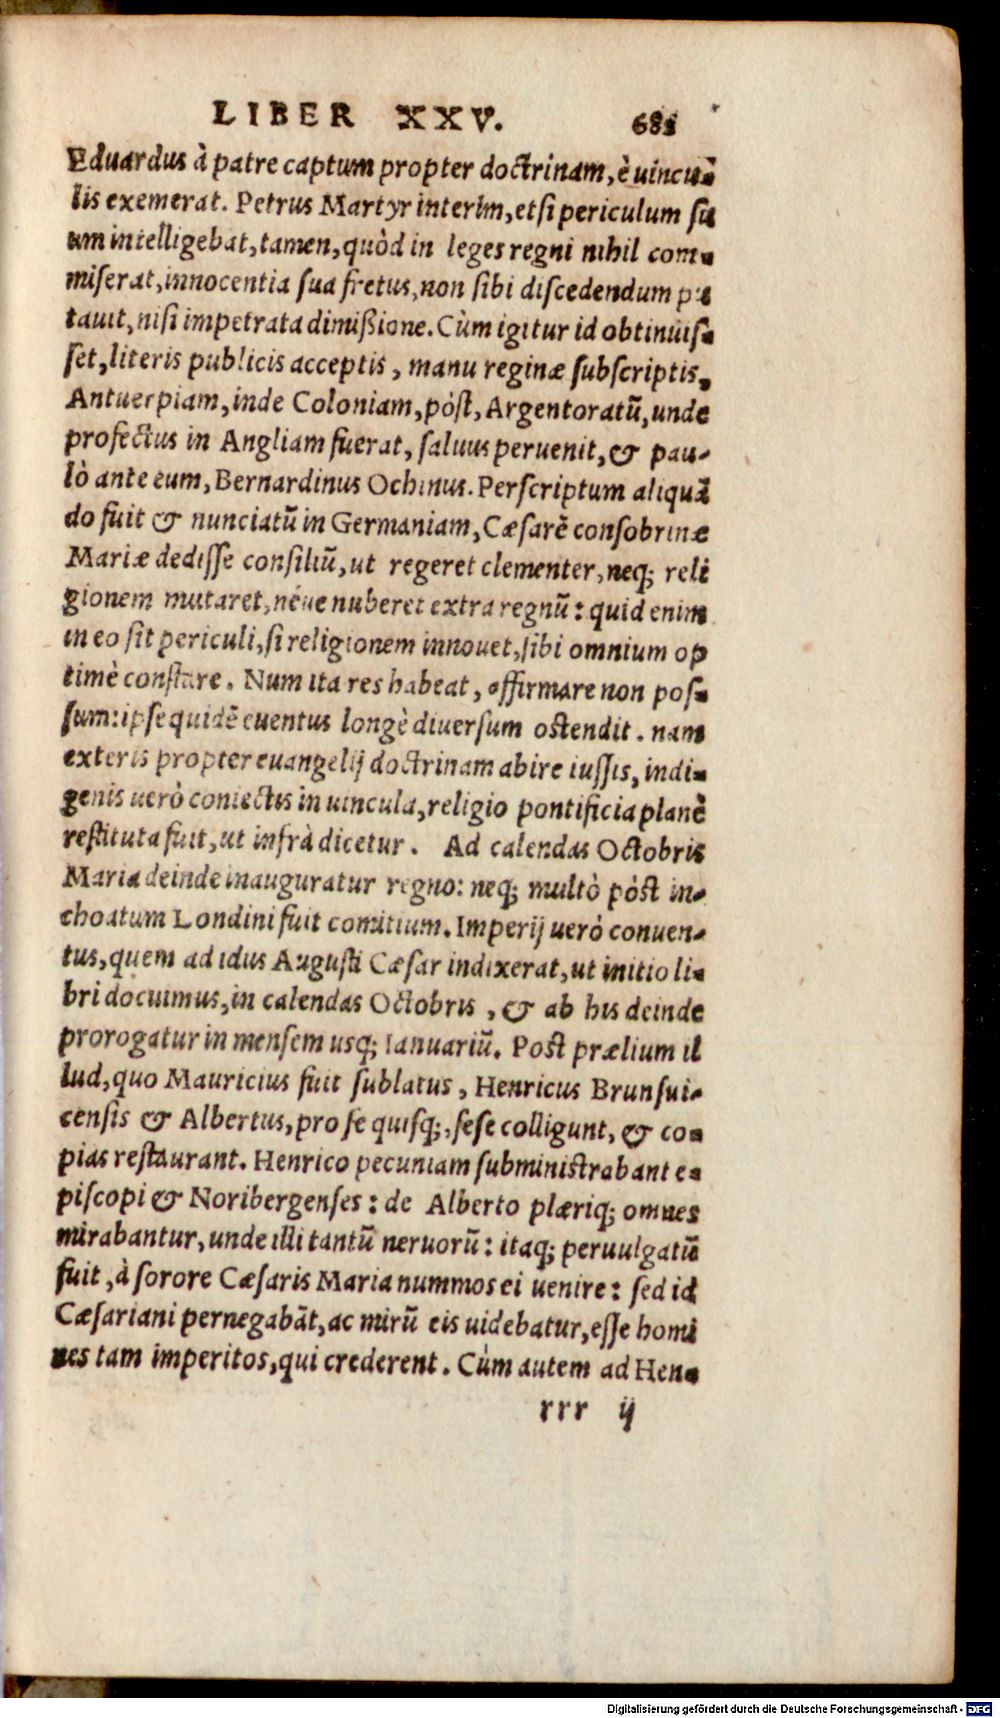 LIBER XXV. 681
Eduardus à patre captum propter doctrinam, è uincu-
lis exemerat. Petrus Martyr interim, etsi periculum su
um intelligebat, tamen, quòd in leges regni nihil com-
miserat, innocentia sua fretus, non sibi discedendum pu
tauit, nisi impetrata dimißione. Cùm igitur id obtinuis-
set, literis publicis acceptis, manu reginæ subscriptis,
Antuerpiam, inde Coloniam, pòst, Argentoratũ, unde
profectus in Angliam fuerat, saluus peruenit, & pau-
lò ante eum, Bernardinus Ochinus. Perscriptum aliquã
do fuit & nunciatũ in Germaniam, Cæsarẽ consobrinæ
Mariæ dedisse consiliũ, ut regeret clementer, neq; reli
gionem mutaret, néue nuberet extra regnũ: quid enim
in eo sit periculi, si religionem innouet, sibi omnium op
timè constare. Num ita res habeat, affirmare non pos-
sum: ipse quidẽ euentus longè diuersum ostendit. nam
exteris propter euangelij doctrinam abire iussis, indi-
genis uerò coniectis in uincula, religio pontificia planè
restituta fuit, ut infrà dicetur. Ad calendas Octobris
Maria deinde inauguratur regno: neq; multò pòst in-
choatum Londini fuit comitium. Imperij uerò conuen-
tus, quem ad idus Augusti Cæsar indixerat, ut initio li-
bri docuimus, in calendas Octobris, & ab his deinde
prorogatur in mensem usq; Ianuariũ. Post prælium il
lud, quo Mauricius fuit sublatus, Henricus Brunsui-
censis & Albertus, pro se quisq;, sese colligunt, & co-
pias restaurant. Henrico pecuniam subministrabant e-
piscopi & Noribergenses: de Alberto plæriq; omnes
mirabantur, unde illi tantũ neruorũ: itaq; peruulgatũ
fuit, à sorore Cæsaris Maria nummos ei uenire: sed id
Cæsariani pernegabãt, ac mirũ eis uidebatur, esse homi
nes tam imperitos, qui crederent. Cùm autem ad Hen-
rrr ij
Digitalisierung gefördert durch die Deutsche Forschungsgemeinschaft - DFG